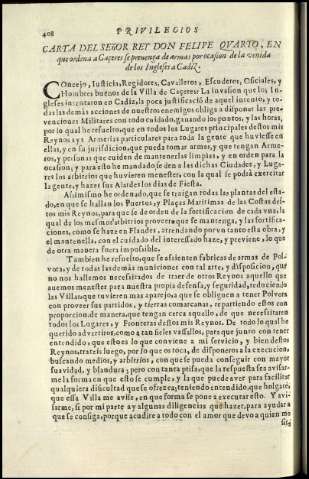 408 PRIVILEGIOS
CARTA DEL SEÑOR REY DON FELIPE QVARTO, EN
que ordena a Caçeres se preuenga de armas por ocasion de la venida
de los Ingleses a Cadiz.
Concejo, Iusticia, Regidores, Caualleros, Escuderos, Oficiales, y
Hombres buenos de la Villa de Caçeres: La inuasion que los In-
gleses intentaron en Cadiz, la poca justificació de aquel intento, y to-
das las demàs acciones de nuestros enemigos obliga a disponer las pre-
uenciones Militares con todo cuidado, ganando los puntos, y las horas,
por lo qual he resuelto, que en todos los Lugares principales destos mis
Reynos aya Armerias particulares para toda la gente que huuiesse en
ellas, y en su jurisdiccion, que pueda tomar armas, y que tengan Arme-
ros, y personas que cuiden de mantenerlas limpias, y en orden para la
ocasion, y para esto he mandado se den a las dichas Ciudades, y Luga-
res los arbitrios que huuieren menester, con la qual se podrà exercitar
la gente, y hazer sus Alardes los dias de Fiesta.
Assimismo he ordenado, que se traigan todas las plantas del esta-
do, en que se hallan los Puertos, y Plaças Maritimas de las Costas des-
tos mis Reynos, para que se dè orden de la fortificacion de cada vna, la
qual de los mesmos arbitrios prouerà que se mantenga, y las fortifica-
ciones, como se haze en Flandes, atrendando por vn tanto esta obra, y
el mantenella, con el cuidado del interessado haze, y preuiene, lo que
de otra manera fuera impossible.
Tambien he resuelto, que se assienten fabricas de armas de Pol-
vora, y de todas las demàs municiones con tal arte, y disposicion, que
no nos hallemos necessitados de traer de otros Reynos aquello que
auemos menester para nuestra propia defensa, y seguridad, reduciendo
las Villas que tuvieren mas aparejo a que se obliguen a tener Polvora
con proveer sus partidos, y tierras comarcanas, repartiendo estos con
proporcion, de manera, que tengan cerca aquello, de que necessitaren
todos los Lugares, y Fronteras destos mis Reynos. De todo lo qual he
querido aduertiros, como a tan fieles vassallos, para que junto con tener
entendido, que esto es lo que conviene a mi servicio, y bien destos
Reynos, trateis luego, por lo que os toca, de disponeros a la execucion,
buscando medios, y arbitrios, con que se pueda conseguir con mayor
suavidad, y blandura; pero con tanta priessa, que la respuesta sea avisar-
me la forma en que esto se cumple, y la que puede aver para facilitar
qualquiera dificultad que se ofrezca, teniendo entendido, que holgarè,
que essa Villa me avise, en que forma se pone a executar esto. Y avi-
sarme, si por mi parte ay algunas diligencias que hazer, para ayudar a
que se consiga, porque acudire a todo con el amor que devo a quien me